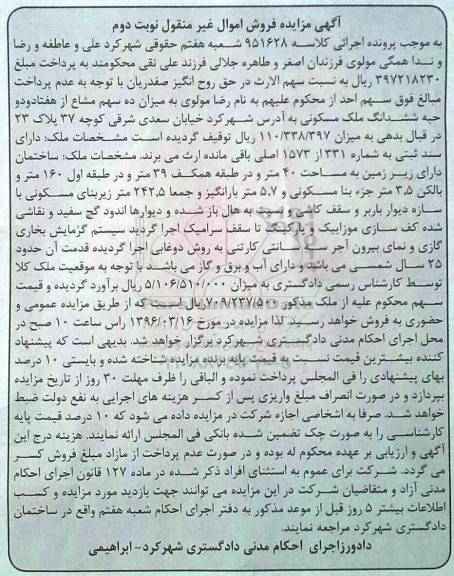 آگهی مزایده فروش اموال غیر منقول نوبت دوم
به موجب پرونده اجرائی کلاسه ۹۵۱۶۲۸ شعبه هفتم حقوقی شهرکرد علی و عاطفه و رضا
و ندا همگی مولوی فرزندان اصغر و طاهره جلالی فرزند علی نقی محکومند به پرداخت مبلغ
۳۹۷۲۱۸۲۳۰ ریال به نسبت سهم الارث در حق روح انگیز صفدریان با توجه به عدم پرداخت
مبالغ فوق سهم احد از محکوم علیهم به نام رضا مولوی به میزان ده سهم مشاع از هفتادودو
حبه ششدانگ ملک مسکونی به آدرس شهرکرد خیابان سعدی شرقی کوچه ۳۷ پلاک ۲۳
در قبال بدهی به میزان ۱۱۰/۳۳۸/۳۹۷ ریال توقیف گردیده است مشخصات ملک: دارای
سند ثبتی به شماره ۳۳۱ از ۱۵۷۳ اصلی باقی مانده ارث می برند. مشخصات ملک: ساختمان
دارای زیر زمین به مساحت ۴۰ متر و در طبقه همکف ۳۹ متر و در طبقه اول ۱۶۰ متر و
بالکن ۳.۵ متر جزء بنا مسکونی و ۵.۷ متر بارانگیز و جمعا ۲۴۲.۵ متر زیربنای مسکونی با
سازه دیوار باربر و سقف کاشی و نسبت به هال باز شده و دیوارها اندود گچ سفید و نقاشی
شده کف سازی موزاییک و پارکینگ تا سقف سرامیک اجرا گردید سیستم گرمایش بخاری
گازی و نمای بیرون آجر سه سانتی کارتنی به روش دوغابی اجرا گردیده قدمت آن حدود
۲۵ سال شمسی می باشد و دارای آب و برق و گاز می باشد با توجه به موقعیت ملک کلا
توسط کارشناس رسمی دادگستری به میزان ۵/۱۰۶/۵۱۰/۰۰۰ ریال برآورد گردیده و قیمت
سهم محکوم علیه از ملک مذکور ۷۰۹/۲۳۷/۵۰۰ ریال است که از طریق مزایده عمومی و
حضوری به فروش خواهد رسید. لذا مزایده در مورخ ۱۳۹۶/۰۳/۱۶ راس ساعت ۱۰ صبح در
محل اجرای احکام مدنی دادگستری شهرکرد برگزار خواهد شد. بدیهی است که پیشنهاد
کننده بیشترین قیمت نسبت به قیمت پایه برنده مزایده شناخته شده و بایستی ۱۰ درصد
بهای پیشنهادی را فی المجلس پرداخت نموده و الباقی را ظرف مهلت ۳۰ روز از تاریخ مزایده
بپردازد و در صورت انصراف مبلغ واریزی پس از کسر هزینه های اجرایی به نفع دولت ضبط
خواهد شد. صرفا به اشخاصی اجازه شرکت در مزایده داده می شود که ۱۰ درصد قیمت پایه
کارشناسی را به صورت چک تضمین شده بانکی فی المجلس ارائه نمایند. هزینه درج این
آگهی و ارزیابی بر عهده محکوم له بوده و در صورت عدم پرداخت از مازاد مبلغ فروش کسر
می گردد. شرکت برای عموم به استثنای افراد ذکر شده در ماده ۱۲۷ قانون اجرای احکام
مدنی آزاد و متقاضیان شرکت در این مزایده می توانند جهت بازدید مورد مزایده و کسب
اطلاعات بیشتر ۵ روز قبل از موعد مذکور به دفتر اجرای احکام شعبه هفتم واقع در ساختمان
دادگستری شهرکرد مراجعه نمایند.
دادورز اجرای احکام مدنی دادگستری شهرکرد- ابراهیمی